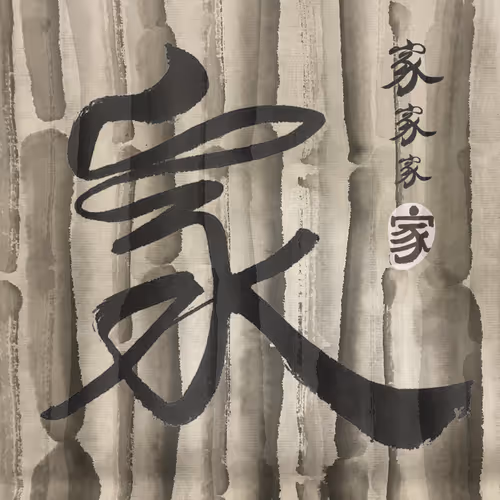 家
家
家
家
家